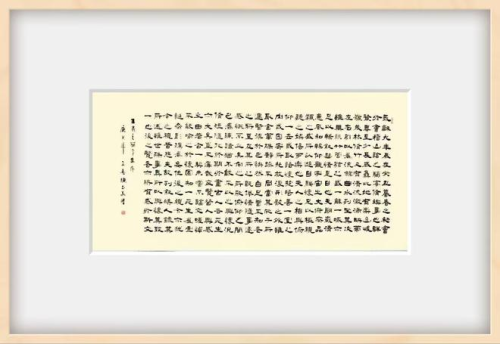 永和九年歲在癸丑暮春之初會
于會稽山陰之蘭亭脩禊事也群
賢畢至少長咸集此地有崇山峻
領茂林脩竹又有清流激湍映帶
左右引以為流觴曲水列坐其次
雖無絲竹管弦之盛一觴一詠亦
足以暢敘幽情是日也天朗氣清
惠風和暢仰觀宇宙之大俯察品
類之盛所以遊目騁懷足以極視
聽之娛信可樂也夫人之相與俯
仰一世或取諸懷抱悟言一室之
內或因寄所託放浪形骸之外雖
趣舍萬殊靜躁不同當其欣於所
遇暫得於己快然自足不知老之
將至及其所之既倦情隨事遷感
慨係之矣向之所欣俛仰之間以
為陳跡猶不能不以之興懷況脩
短隨化終期於盡古人云死生亦
大矣豈不痛哉每覽昔人興感之
由若合一契未嘗不臨文嗟悼不
能喻之於懷固知一死生為虛誕
齊彭殤為妄作後之視今亦由今
之視昔悲夫故列敘時人錄其所
述雖世殊事異所以興懷其致
一也後之覽者亦將有感於斯文